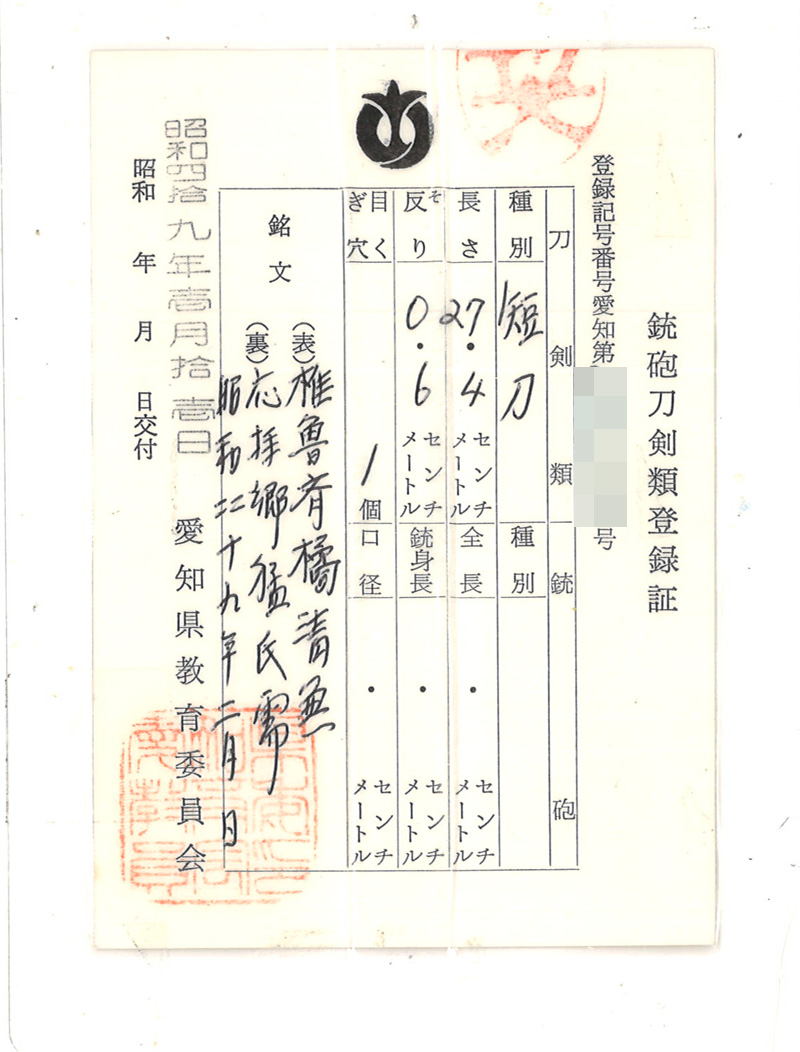 銃砲刀剣類登録証
登録記号番号愛知第
号
刀剣類
種別
短刀
長さ
27.4
センチメートル
反り
そ
0.6
センチメートル
目くぎ穴
1
個
銃砲
種別
全長
・
センチメートル
銃身長
・
センチメートル
口径
・
センチメートル
銘文
(表)
魯斉橘清
(裏)
応拝郷猛氏需
昭和二十九年二月日
昭和四拾九年壱月拾壱日
昭和 年 月 日交付
愛知県教育委員会